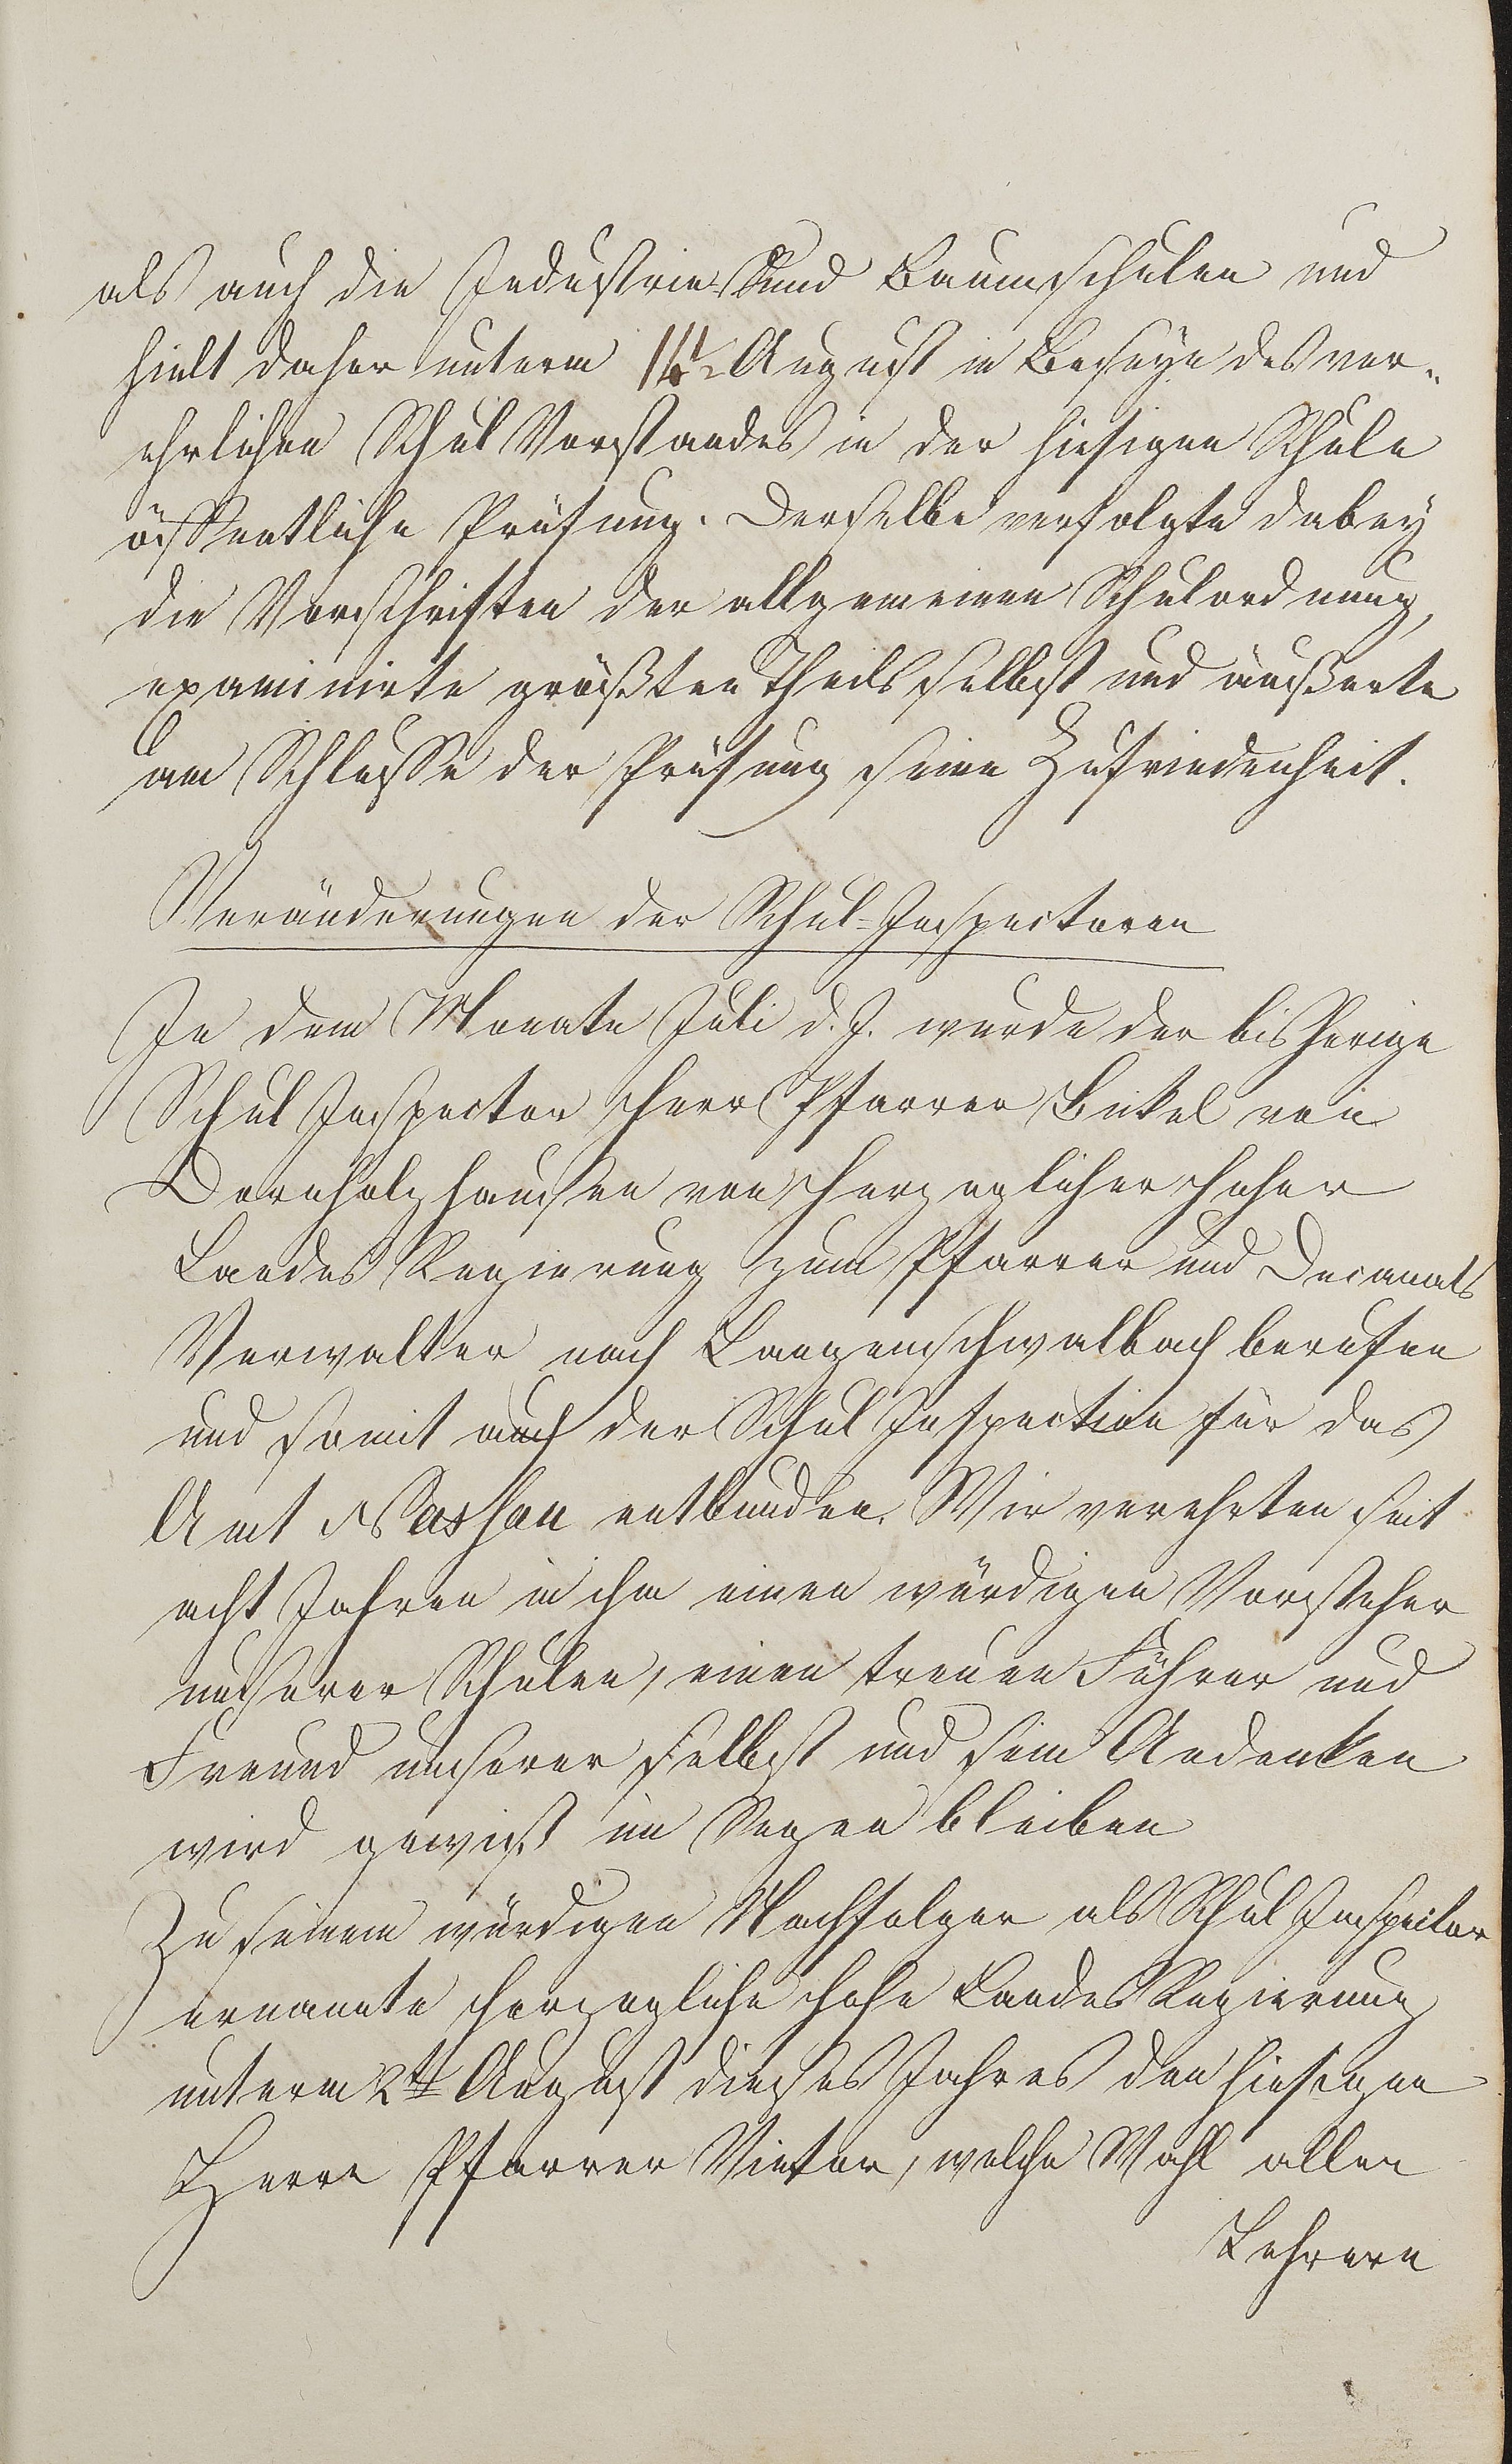 als auch die Industrie und Baumschulen und
hielt daher unterm 16t August in Beiseyn des ver-
ehrlichen Schul Vorstandes in der hiesigen Schule
öffentliche Prüfung. Derselbe verfolgte dabey
die Vorschriften der allgemeinen Schulordnung,
examinirte größten Theils selbst und äußerte
am Schlusse der Prüfung seine Zufriedenheit.
Veränderungen der Schul-Inspectoren
In dem Monate Juli d. J. wurde der bisherige
Schul Inspector Herr Pfarrer Bickel von
Dornholzhausen von herzoglicher hoher
Landes Regierung zum Pfarrer und Decanats
Verwalter nach Langenschwalbach berufen
und somit auch der Schul Inspection für das
Amt Nassau entbunden. Wir verehrten seit
acht Jahren in ihm einen würdigen Vorsteher
unserer Schulen, einen treuen Führer und
Freund unserer selbst und sein Andenken
wird gewiß im Segen bleiben
Zu seinem würdigen Nachfolger als Schul Inspector
ernannte herzogliche hohe Landes Regierung
unterm 2ten August dieses Jahres den hiesigen
Herrn Pfarrer Vietor, welche Wahl allen
Lehrern